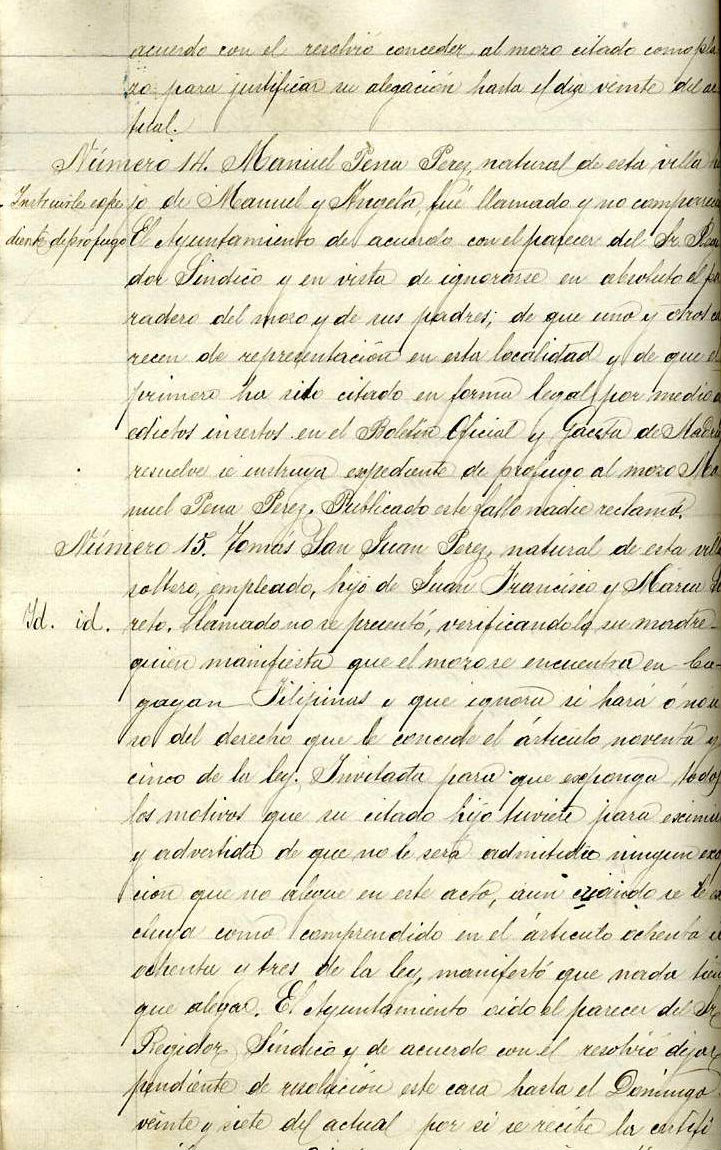 acuerdo con el resolvió conceder al mozo citado como pla
zo para justificar su alegación hasta el dia veinte del ac
tual.
Número 14. Manuel Pena Perez, natural de esta villa hi
Instruirle expe
jo de Manuel y Angela, fué llamado y no compareció
diente de prófugo
El Ayuntamiento de acuerdo con el parecer del Sr. Regi
dor Sindico y en vista de ignorarse en absoluto el pa
radero del mozo y de sus padres; de que uno y otros ca
recen de representación en esta localidad y de que el
primero ha sido citado en forma legal por medio de
edictos insertos en el Boletin Oficial y Gaceta de Madrid
resuelve se instruya expediente de prófugo al mozo Ma
nuel Pena Perez. Publicado este fallo nadie reclamó.
Número 15. Tomás San Juan Perez, natural de esta villa
soltero, empleado, hijo de Juan Francisco y Maria Lo
Id. id.
reto. Llamado no se presentó, verificandolo su madre
quien manifiesta que el mozo se encuentra en Ca-
gayan Filipinas y que ignora si hará ó no u
so del derecho que le concede el árticulo noventa y
cinco de la ley. Invitada para que exponga todos
los motivos que su citado hijo tuviere para eximir
y advertida de que no le será admitida ningun exep
cion que no alegue en este acto, aún cuando se le ex
cluya como comprendido en el árticulo ochenta u
ochenta y tres de la ley, manifestó que nada tien
que alegar. El Ayuntamiento oido el parecer del Sr
Regidor Sindico y de acuerdo con el resolvió dejar
pendiente de resolución este caso hasta el Domingo
veinte y siete del actual por si se recibe la certifi